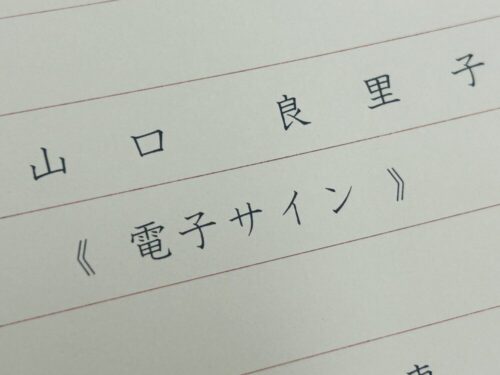 山口 良里子
《電子サイン》